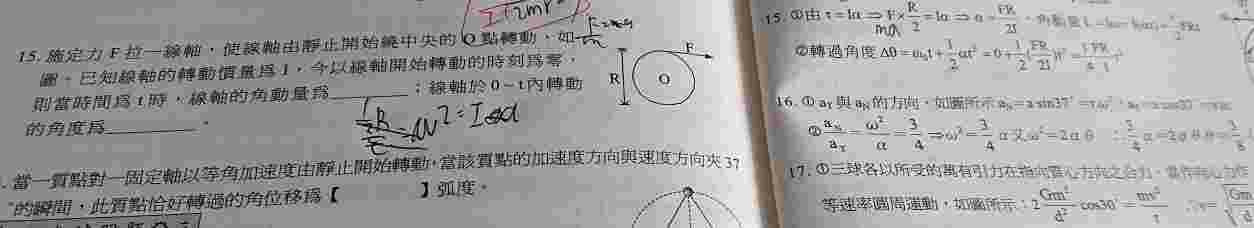 15. 施定力 F 拉一線軸,使線軸由靜止開始繞中央的 O 點轉動,如
圖。已知線軸的轉動慣量爲 I,今以線軸開始轉動的時刻爲零,
則當時間爲 t 時,線軸的角動量爲________;線軸於 0~t 內轉動
的角度爲________。
R
O
F
當一質點對一固定軸以等角加速度由靜止開始轉動,當該質點的加速度方向與速度方向夾 37
°的瞬間,此質點恰好轉過的角位移爲【 】弧度。
15. ①由 τ = Iα ⇒ F × R/2 = Iα ⇒ α = FR/2I
②轉過角度 Δθ = ω₀t + 1/2 αt² = 0 + 1/2 (FR/2I)t² =
16. ① a_T 與 a_N 的方向,如圖所示 a_N = a sin37° = rω²
② a_N/a_T = ω²/α = 3/4 ⇒ ω² = 3/4 α 又 ω² = 2αθ ∴ 3/4 α = 2αθ θ = 3/8
17. ①三球各以所受的萬有引力在指向質心方向之合力,當作向心力作
等速率圓周運動,如圖所示:2 Gm²/d² cos30° = mv²/r ∴v = √Gm/d